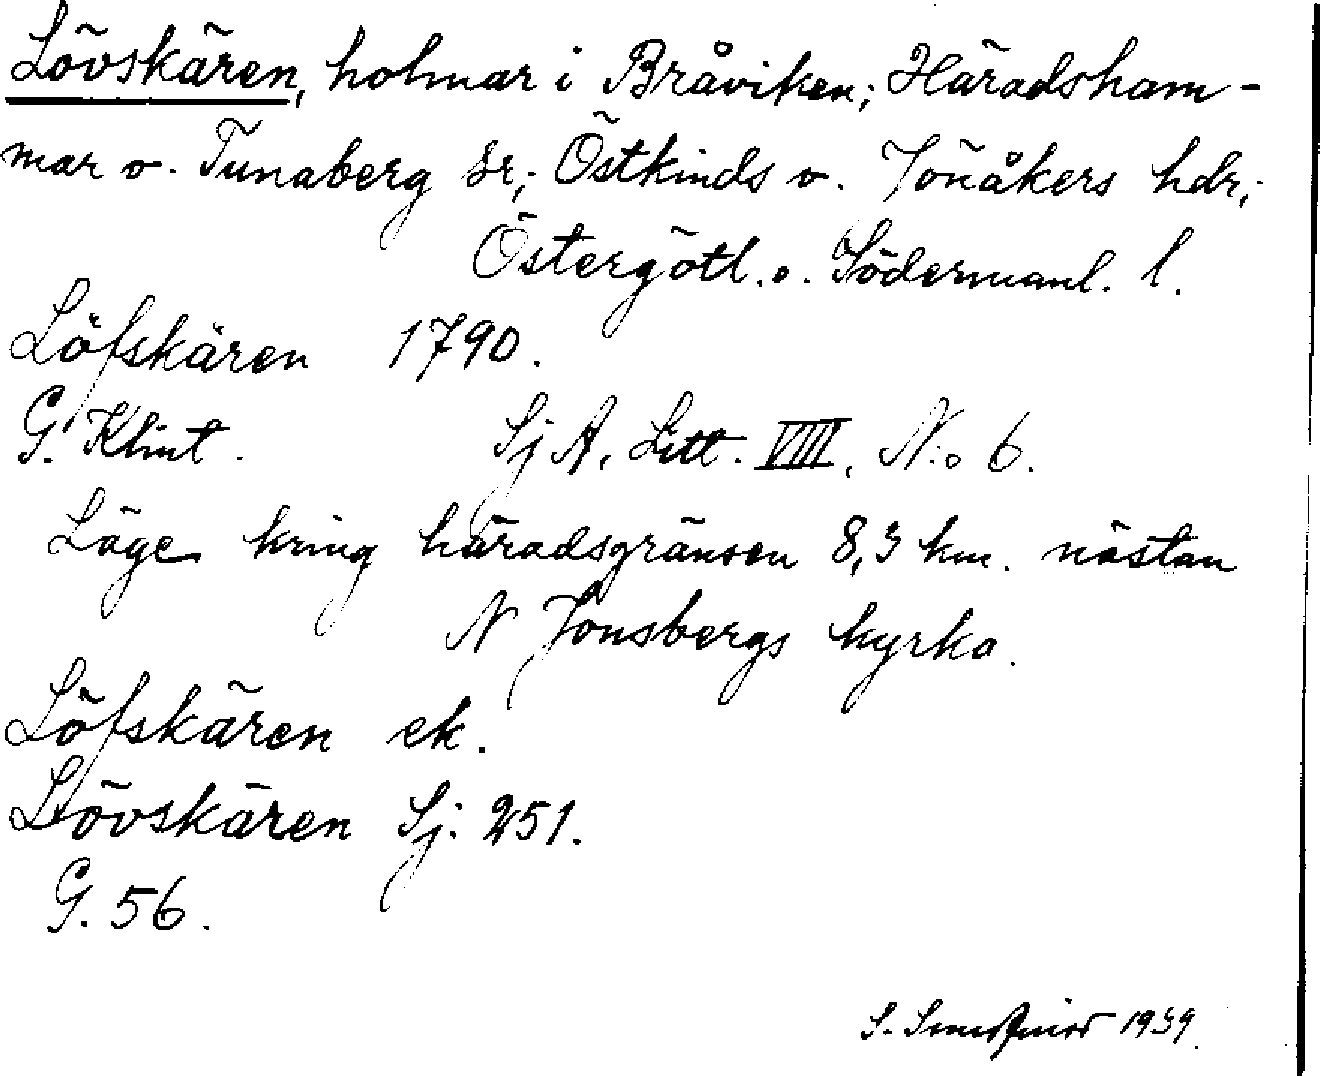 Lövskären, holmar i Bråviken; Häradsham-
mar o. Tunaberg sr; Östkinds o. Jönåkers hdr;
Östergötl. o. Södermanl. l.
Löfskären 1790.
G. Klint. Sj A, Litt. VIII, N:o 6.
Läge kring häradsgränsen 8,3 km. nästan
N Jonsbergs kyrka.
Löfskären ek.
Lövskären Sj. 251.
G. 56.
S. 1939.